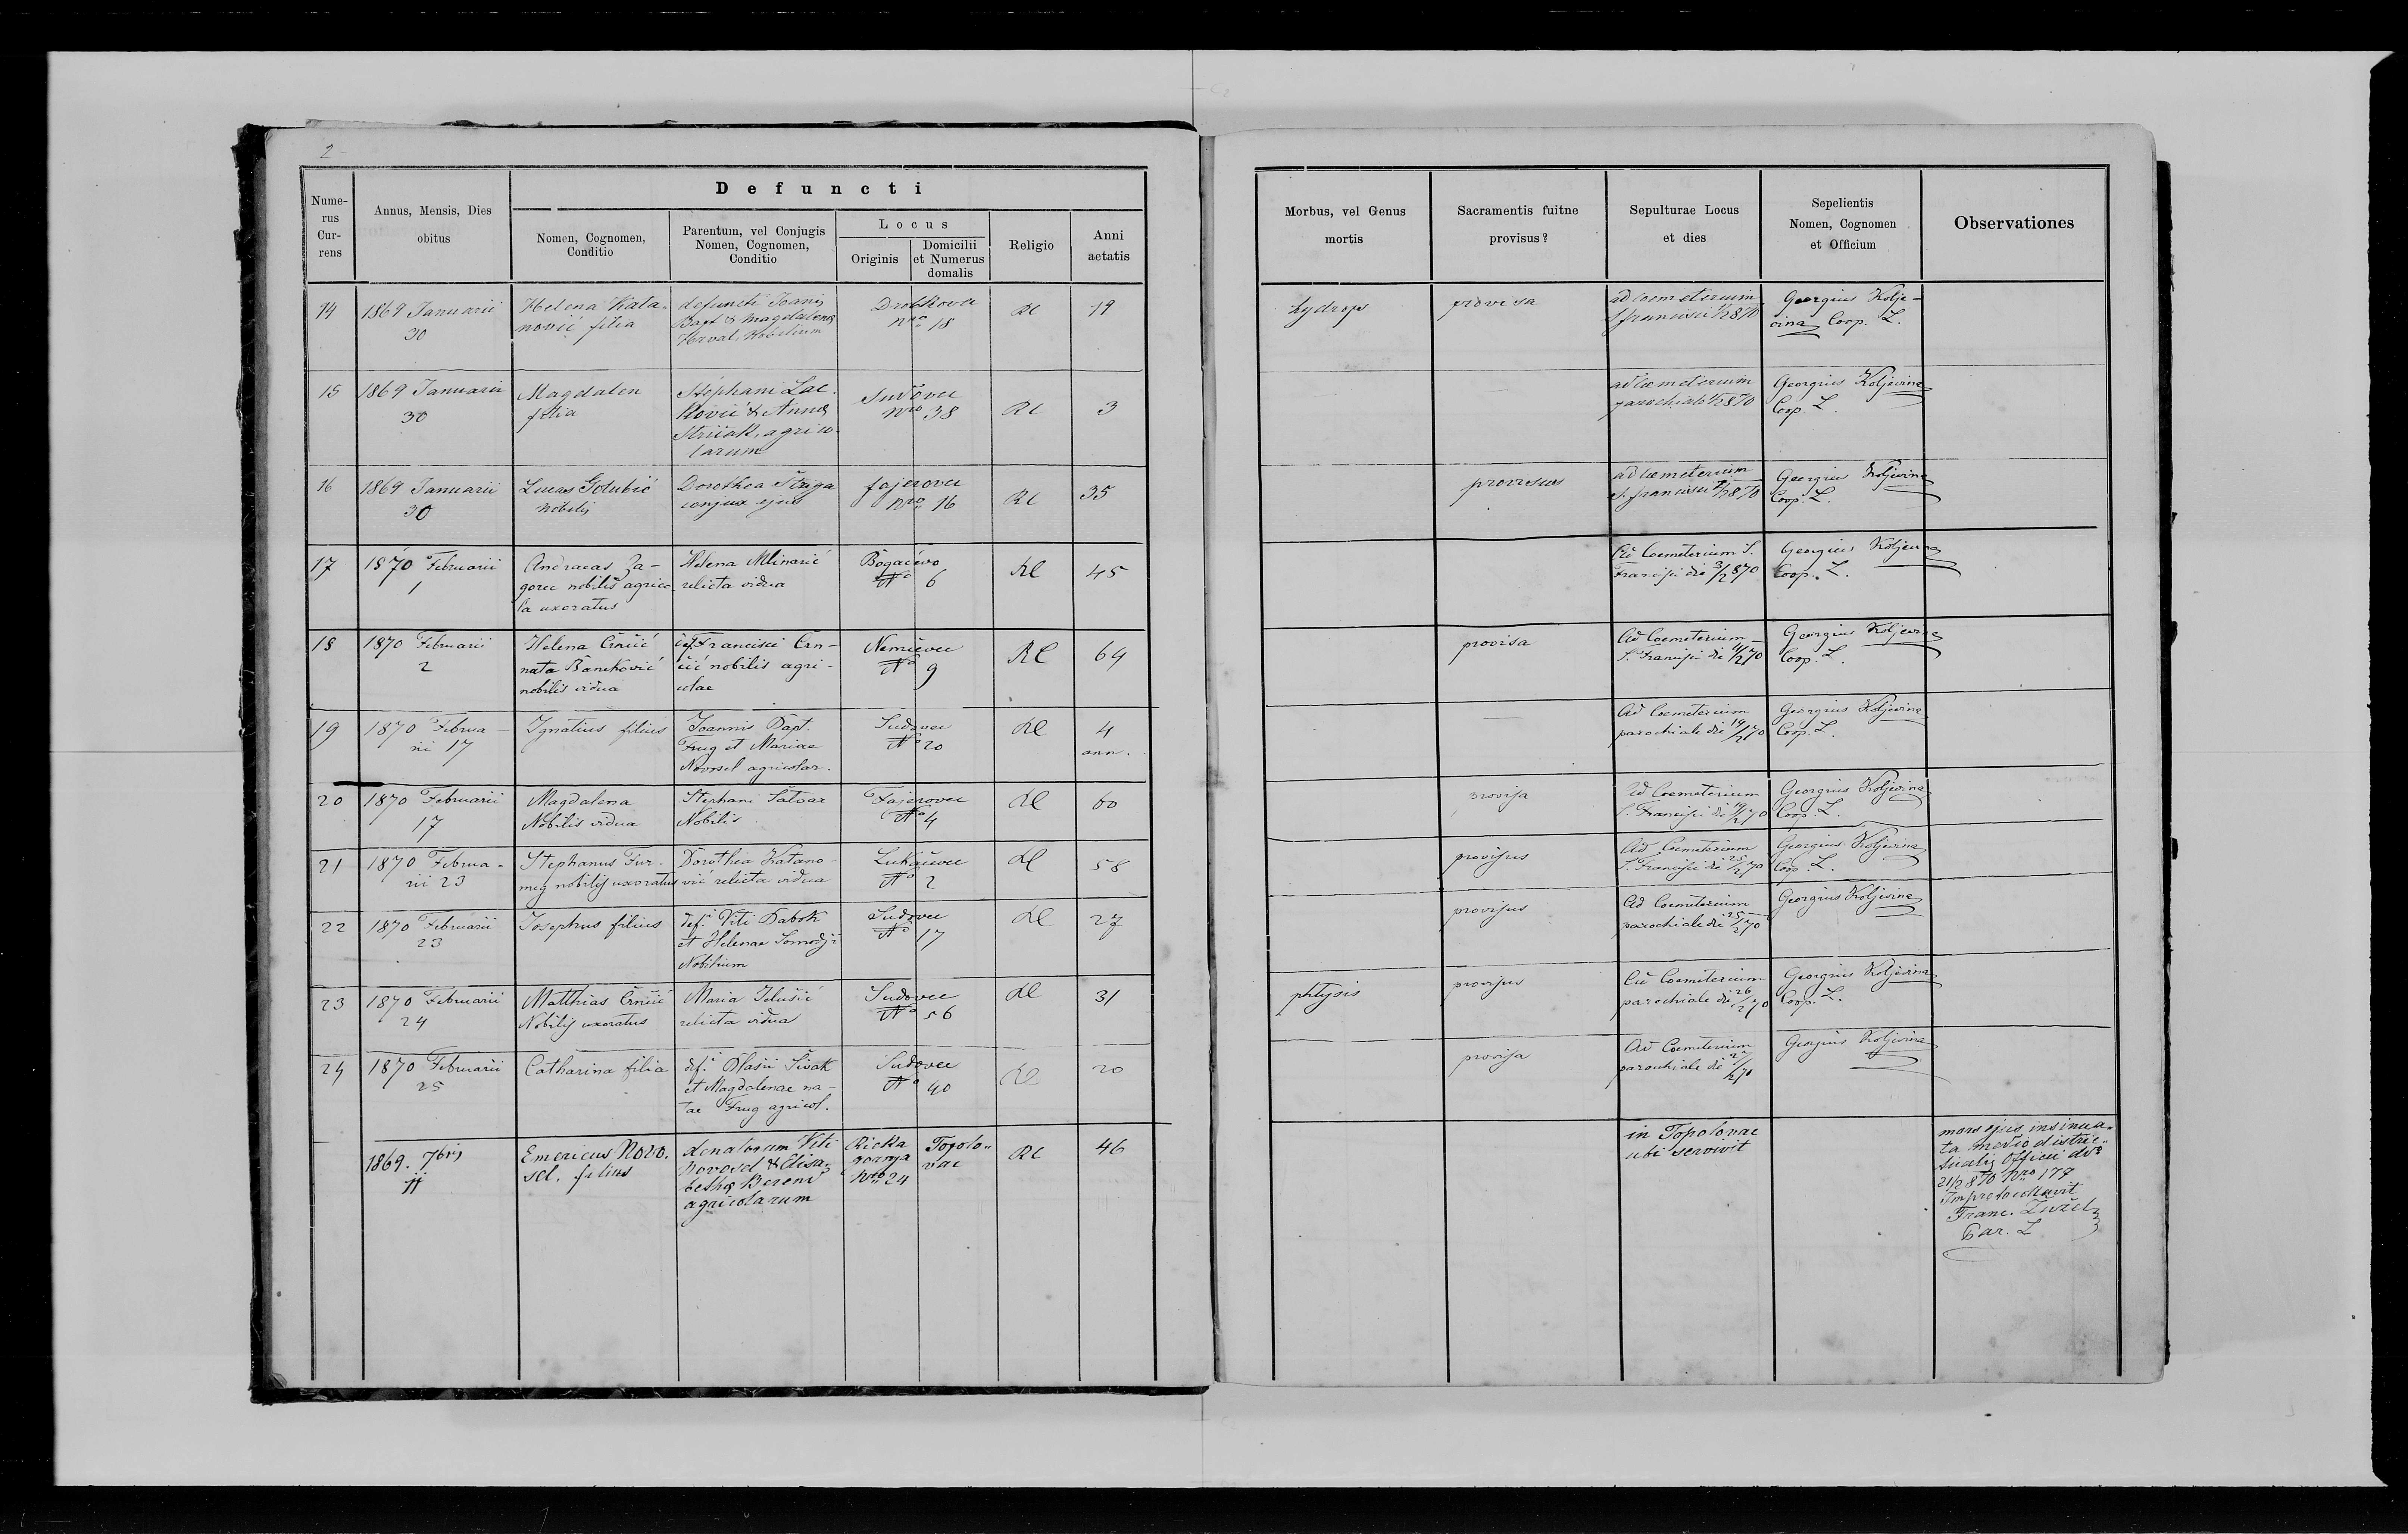 2
Defuncti
Numerus Currens
Annus, Mensis, Dies obitus
Nomen, Cognomen, Conditio
Parentum, vel Conjugis Nomen, Cognomen, Conditio
Locus
Originis
Domicilii et Numerus domalis
Religio
Anni aetatis
Morbus, vel Genus mortis
Sacramentis fuitne provisus?
Sepulturae Locus et dies
Sepelientis Nomen, Cognomen et Officium
Observationes
14
1869 Januarii
30
Helena Kata-
nović filia
defuncti Joanis
Bapt & Magdalenę
Horvat, Nobilium
Drobkovec
Nro 18
RC
19
hydrops
provisa
ad coemeterium
S francisci 1/2 870
Georgius Kolje-
vina Coop. L.
15
1869 Januarii
30
Magdalen
filia
Stephani Lac
ković & Annę
agrico
larum
Sudovec
Nro 38
RC
3
—
ad coemeterium
parochiale 1/2 870
Georgius Koljevina
Coop. L.
16
1869 Januarii
30
Lucas Golubić
nobilis
Dorothea Striga
conjux ejus
fajerovec
Nro 16
RC
35
provisus
ad coemeterium
S. francisci 1/2 870
Georgius Koljevina
Coop. L.
17
1870 Februarii
1
Andraeas Za-
gorec nobilis agrico
la uxoratus
Helena Mlinarić
relicta vidua
Bogačevo
No 6
RC
45
Ad Coemeterium S.
Francisci die 3/2 870
Georgius Koljevina
Coop. L.
18
1870 Februarii
2
Helena Crnčić
nata Banković
nobilis vidua
def. Francisci Crn-
čić nobilis agri-
colae
Nemčevec
No 9
RC
64
provisa
Ad Coemeterium
S. Francisci die 4/2 70
Georgius Koljevina
Coop. L.
19
1870 Februa-
rii 17
Ignatius filius
Joannis Bapt.
Frug et Mariae
Novosel agricolar.
Sudovec
No 20
RC
4
ann.
—
Ad Coemeterium
parochiale die 19/2 70
Georgius Koljevina
Coop. L.
20
1870 Februarii
17
Magdalena
Nobilis vidua
Stephani Šatvar
Nobilis
Fajerovec
No 4
RC
60
provisa
Ad Coemeterium
S. Francisci die 19/2 70
Georgius Koljevina
Coop. L.
21
1870 Februa-
rii 23
Stephanus Fur-
meg nobilis uxoratus
Dorothea Katano-
vić relicta vidua
Lukačevec
No 2
RC
58
provisus
Ad Coemeterium
S. Francisci die 25/2 70
Georgius Koljevina
Coop. L.
22
1870 Februarii
23
Josephus filius
def. Viti Babok
et Helenae Somodji
Nobilium
Sudovec
No 17
RC
27
provisus
Ad Coemeterium
parochiale die 25/2 70
Georgius Koljevina
23
1870 Februarii
24
Matthias Črnčić
Nobilis uxoratus
Maria Jelušić
relicta vidua
Sudovec
No 56
RC
31
phtysis
provisus
Ad Coemeterium
parochiale die 26/2 70
Georgius Koljevina
Coop. L.
24
1870 Februarii
25
Catharina filia
def. Blasii Sivak
et Magdalenae na-
tae Frug agricol.
Sudovec
No 40
RC
20
provisa
Ad Coemeterium
parochiale die 27/2 70
Georgius Koljevina
1869. 7bris
11
Emericus Novo-
sel, filius
denatorum Viti
Novosel & Elisa-
bethę
agricolarum
Rieka
gornja
Nro 24
Topolo-
vac
RC
46
in Topolovac
ubi servivit
mors ejus insinua-
ta medio distric-
tualis Officii ddo
21/2 870 Nro 177
Improtocollavit
Franc. Žužel
Par. L